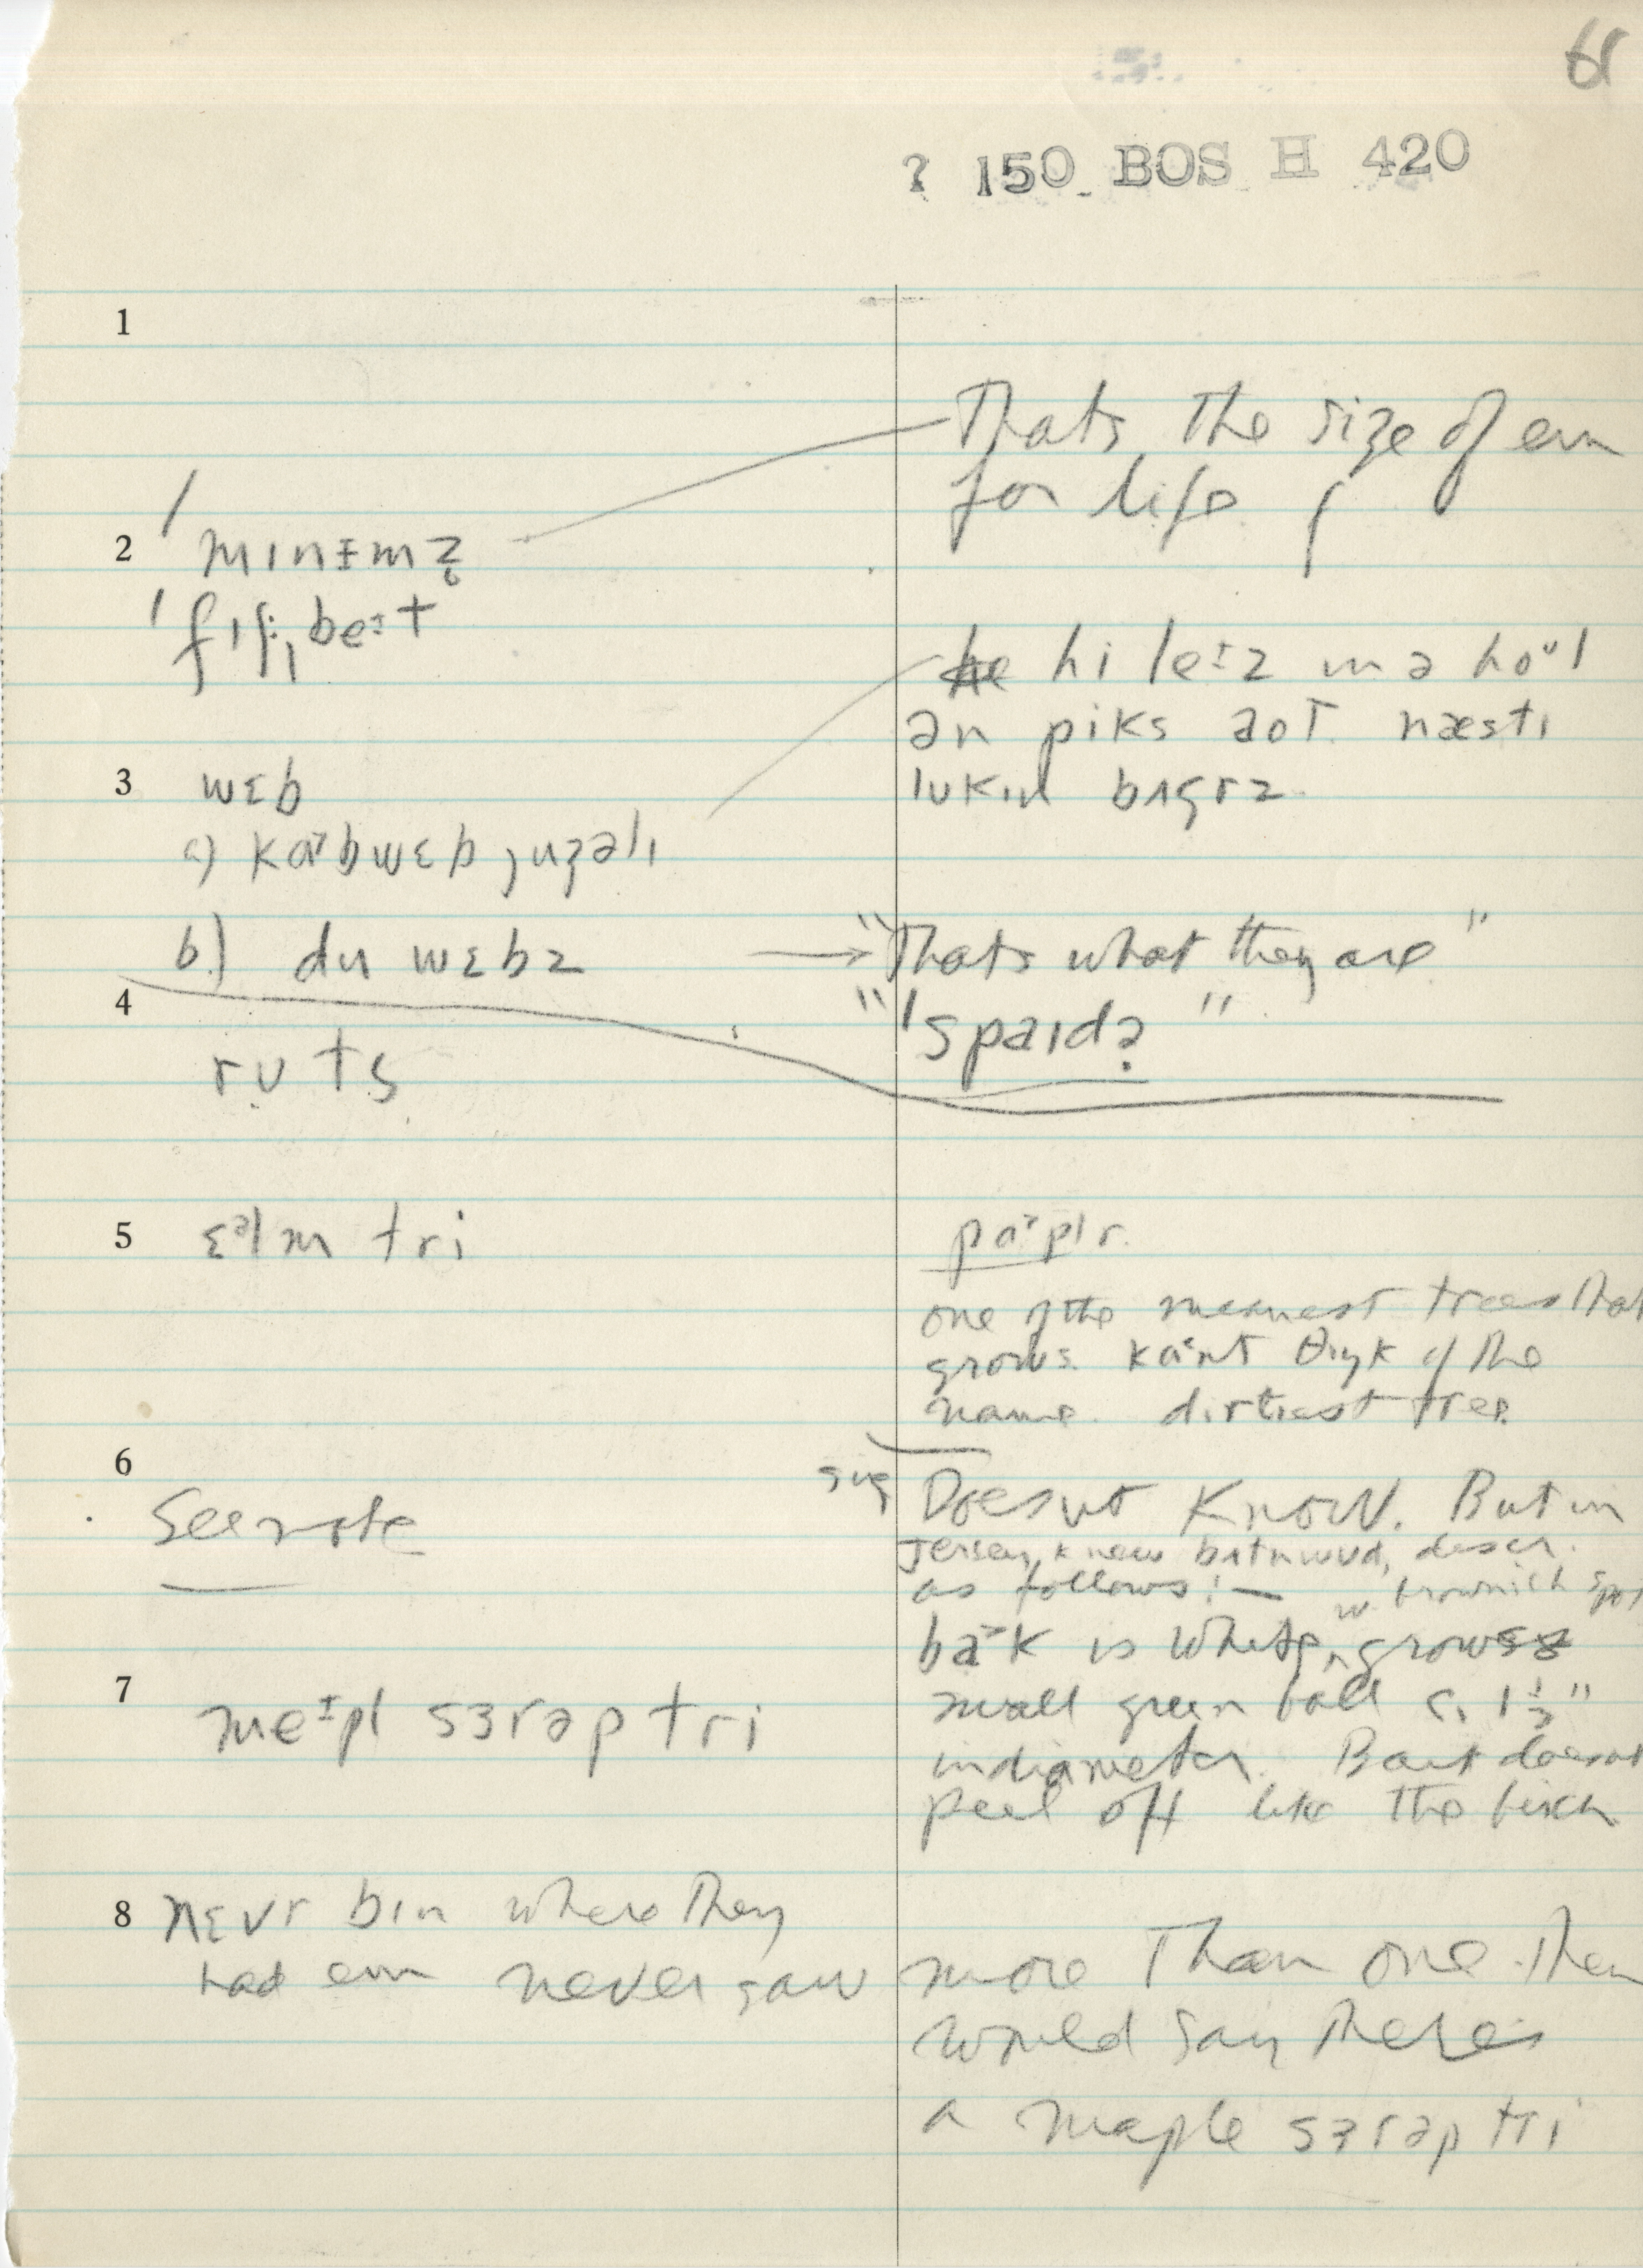 61
? 150 BOS H 420
1
Thats the size of em
for life
2 ˈmɪnɨmz̥
ˈfɪʃˌbeɨt
hi leɨz ɪn ə hoᵘl
ən piks aʊt næstɪ
lukɪn bʌgrz
3 wɛb
a) kɑbwɛb ˌjuʒəlɪ
b) du wɛbz → "Thats what they are"
4 "ˈspaɪdə"
ruts
5 ɛᵊlm tri
pɑplr.
one of the meanest trees that
grows. kɑnt θɪŋk of the
name. dirtiest tree
6 See note
sug Doesnt know. But in
Jersey, knew bʌtnwud, descr.
as follows: — w. brownish spots
bak is white, ^ grows
small green ball c. 1 1/2"
in diameter. Bark doesnt
peel off like the birch
7 meɨpl sɜrəp tri
8 nɛvr bɪn where they
had em never saw more than one. Then
would say theres
a maple sɜrəp tri